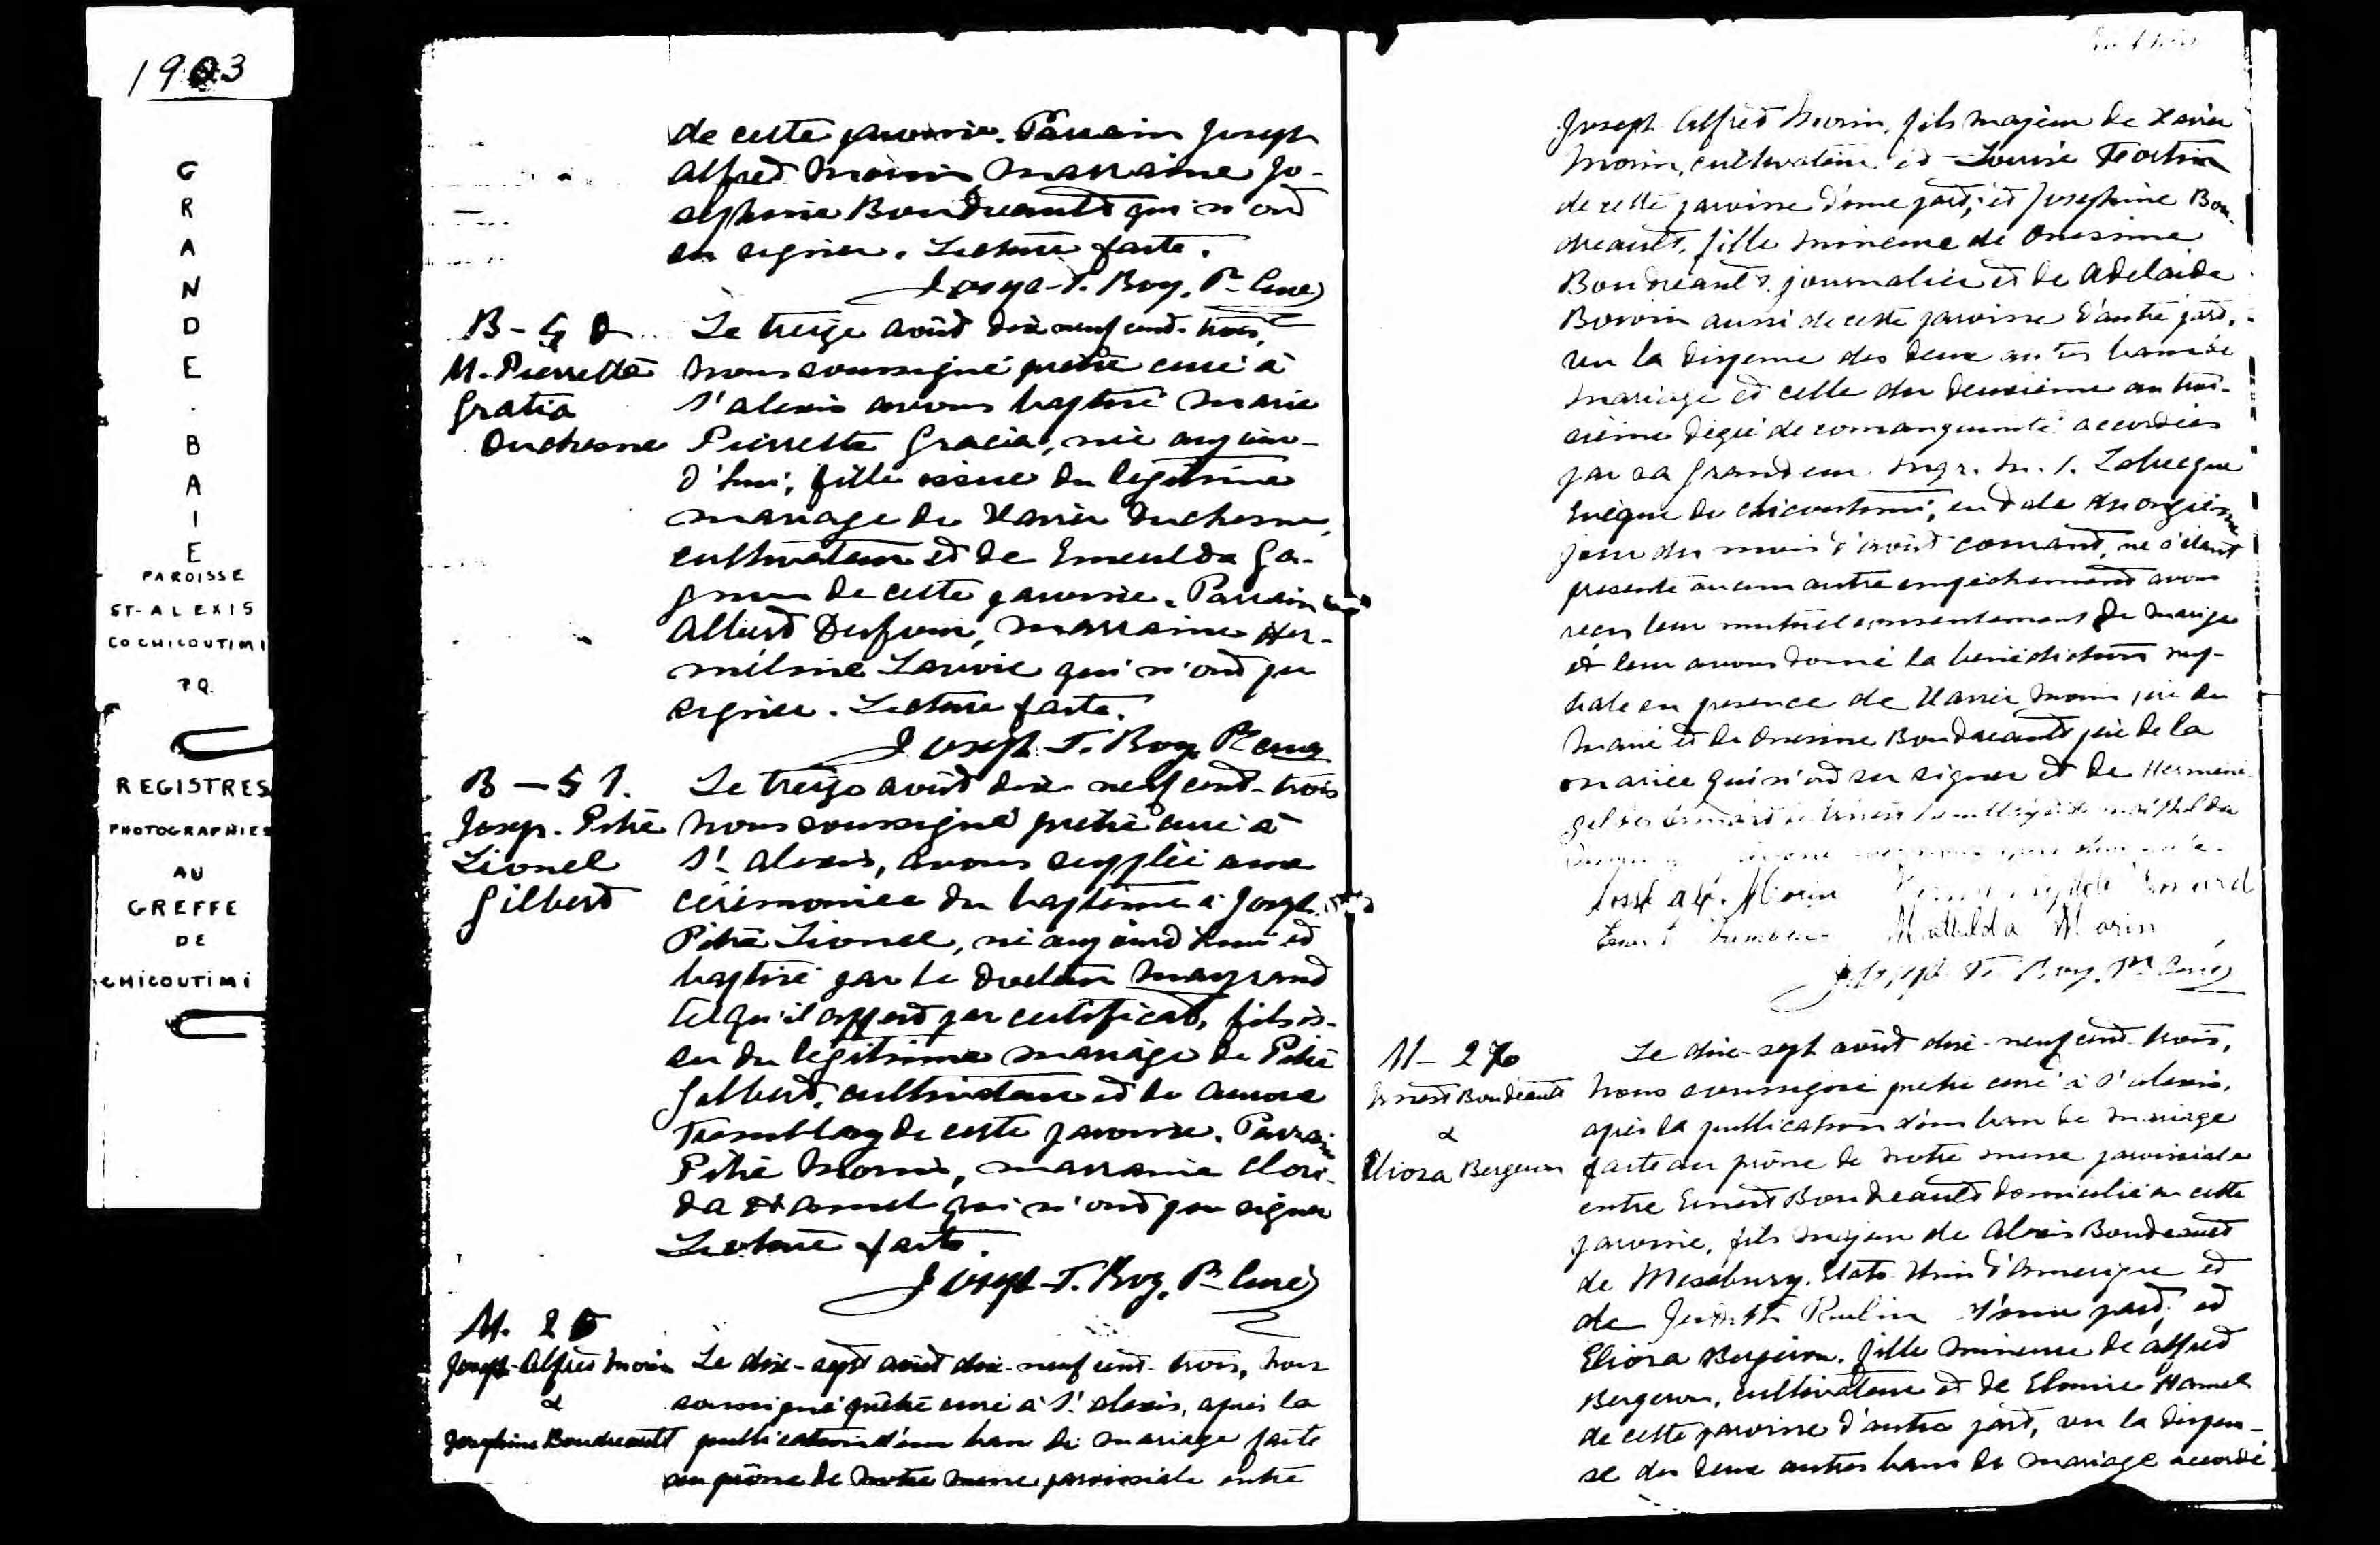 1903
GRANDE-BAIE
PAROISSE
ST-ALEXIS
CO CHICOUTIMI
P.Q.
REGISTRES
PHOTOGRAPHIES
AU
GREFFE
DE
CHICOUTIMI
de cette paroisse. Parrain Joseph
Alfred Morin marraine Jo-
sephine Boudreault qui n'ont
su signer. Lecture faite.
Joseph-T. Roy, Ptre Curé
B-50
M. Pierrette
Gratia
Duchesne
Le treize août dix neuf cent-trois,
nous soussigné prêtre curé à
St alexis avons baptisé Marie
Pierrette Gracia, née aujour-
d'hui, fille issue du légitime
mariage de Xavier Duchesne,
cultivateur et de Emeulda Ga-
gnon de cette paroisse. Parrain
Albert Dufour, marraine Her-
méline Lavoie qui n'ont pu
signer. Lecture faite.
Joseph-T. Roy Ptre Curé
B-51.
Josep. Pitre
Lionel
Gilbert
Le treize août dix neuf cent-trois
nous soussigné prêtre curé à
St alexis, avons supplée aux
cérémonies du baptême à Joseph
Pitre Lionel, né aujourd'hui et
baptisé par le docteur Mayrand
tel qu'il appert par certificat, fils is-
su du légitime mariage de Pitre
Gilbert, cultivateur et de Aurore
Tremblay de cette paroisse. Parrain
Pitre Morin, marraine Clori-
da Hamel qui n'ont pu signer
Lecture faite.
Joseph-T. Roy, Ptre Curé
M. 26
Joseph-Alfred Morin
&
Josephine Boudreault
Le dix-sept août dix-neuf cent-trois, nous
soussigné prêtre curé à St alexis, après la
publication d'un ban de mariage faite
au prône de notre messe paroissiale entre
Joseph Alfred Morin, fils majeur de Xavier
Morin, cultivateur et Louise Fortin
de cette paroisse d'une part, et Josephine Bou-
dreault, fille mineure de Onesime
Boudreault, journalier et de Adelaide
Boivin aussi de cette paroisse d'autre part,
vu la dispense des deux autres bans de
mariage et celle du deuxième au troi-
sième degré de consanguinité accordées
par sa Grandeur Mgr. M. T. Labrecque
Evêque de Chicoutimi, en date du onzieme
jour du mois d'août courant, ne s'étant
presenté aucun autre empêchement avons
reçu leur mutuel consentement de mariage
et leur avons donné la bénédiction nup-
tiale en presence de Xavier Morin père du
marié et de Onesime Boudreault père de la
mariée qui n'ont su signer et de Herméné-
Joseph Alf. Morin
Mathilda Morin
Joseph-T. Roy, Ptre Curé
M-27
Ernest Boudreault
&
Eliosa Bergeron
Le dix-sept août dix-neuf cent-trois,
nous soussigné prêtre curé à St alexis,
après la publication d'un ban de mariage
faite au prône de notre messe paroissiale
entre Ernest Boudreault domicilié en cette
paroisse, fils majeur de Alexis Boudreault
de Etats Unis d'Amérique et
de Judith Poulin d'une part, et
Eliosa Bergeron, fille mineure de Alfred
Bergeron, cultivateur et de Elmire Hamel
de cette paroisse d'autre part, vu la dispen-
se des deux autres bans de mariage accordé